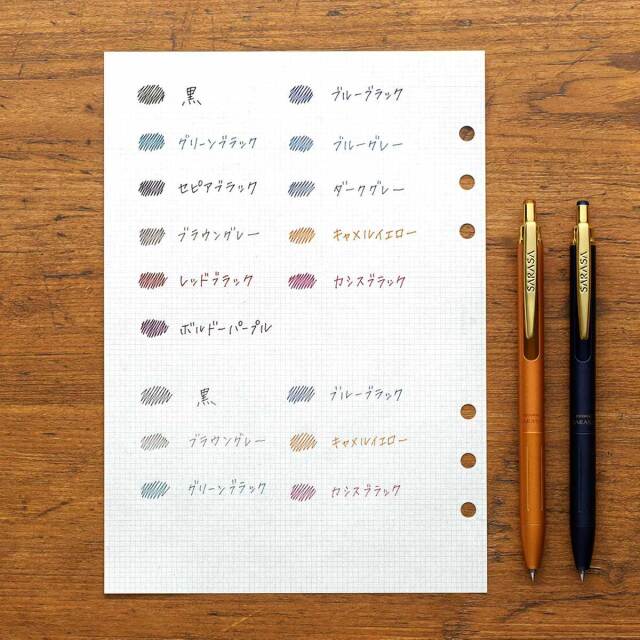 黒 ブルーブラック
グリーンブラック ブルーグレー
セピアブラック ダークグレー
ブラウングレー キャメルイエロー
レッドブラック カシスブラック
ボルドーパープル
黒 ブルーブラック
ブラウングレー キャメルイエロー
グリーンブラック カシスブラック
SARASA
SARASA